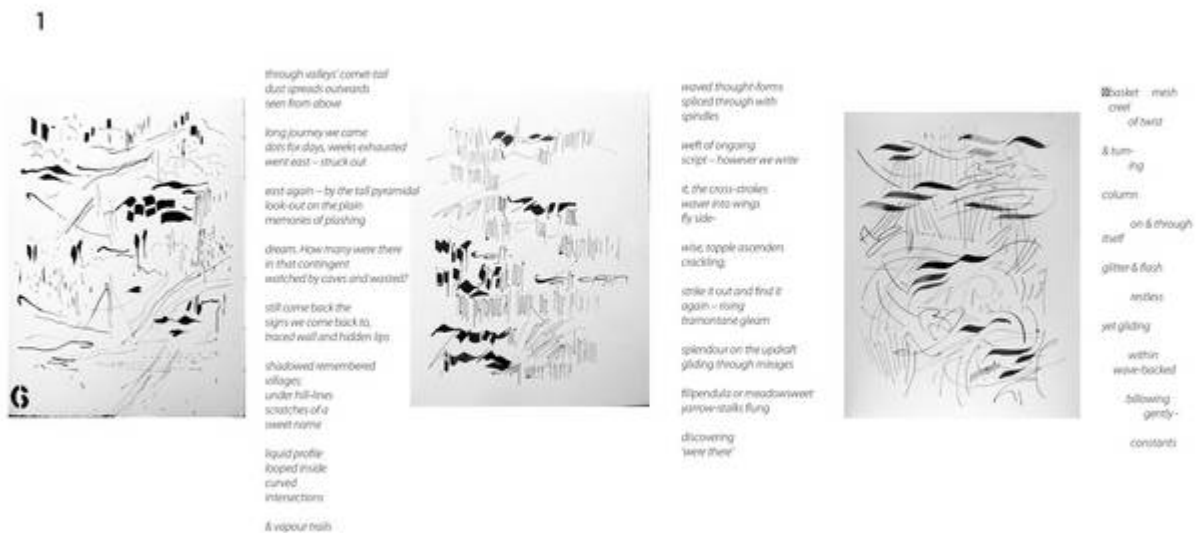 1
6
through valleys' comet-tail
dust spreads outwards
seen from above
long journey we came
dots for days, weeks exhausted
went east – struck out
east again – by the tall pyramidal
look-out on the plain
memories of plashing
dream. How many were there
in that contingent
watched by caves and wasted?
still come back the
signs we come back to,
traced wall and hidden lips
shadowed remembered
villages;
under hill-lines
scratches of a
sweet name
liquid profile
looped inside
curved
intersections
& vapour trails
waved thought-forms
spliced through with
spindles
weft of ongoing
script – however we write
it, the cross-strokes
waver into wings
fly side-
wise, topple ascenders
crackling,
strike it out and find it
again – rising
tramontane gleam
splendour on the updraft
gliding through mirages
filipendula or meadowsweet
yarrow-stalks flung
discovering
'were there'
basket mesh
creel
of twist
& turn-
ing
column
on & through
itself
glitter & flash
restless
yet gliding
within
wave-backed
billowing
gently -
constants